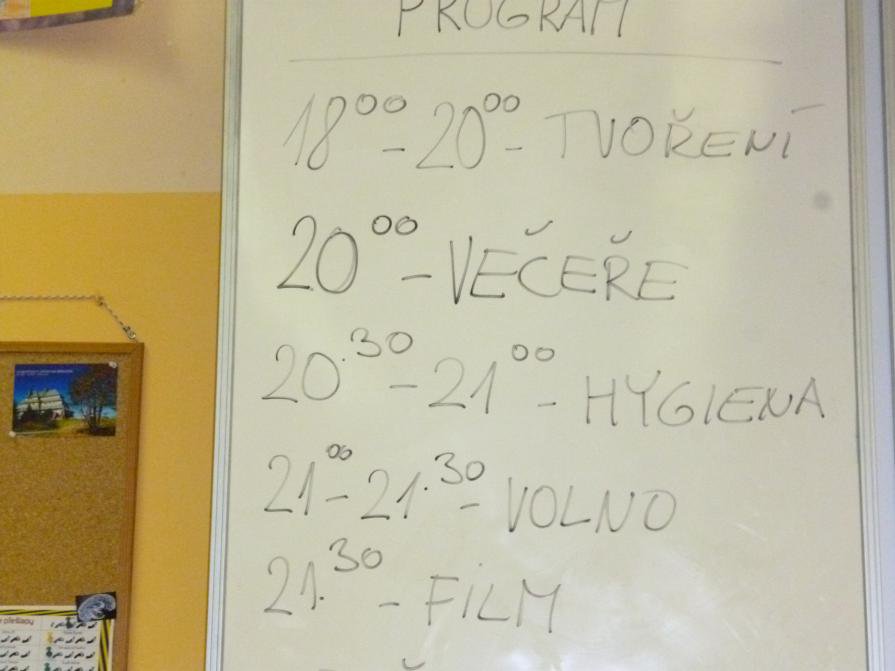 PROGRAM
18⁰⁰ - 20⁰⁰ - TVOŘENÍ
20⁰⁰ - VEČEŘE
20.³⁰ - 21⁰⁰ - HYGIENA
21⁰⁰ - 21.³⁰ - VOLNO
21.³⁰ - FILM